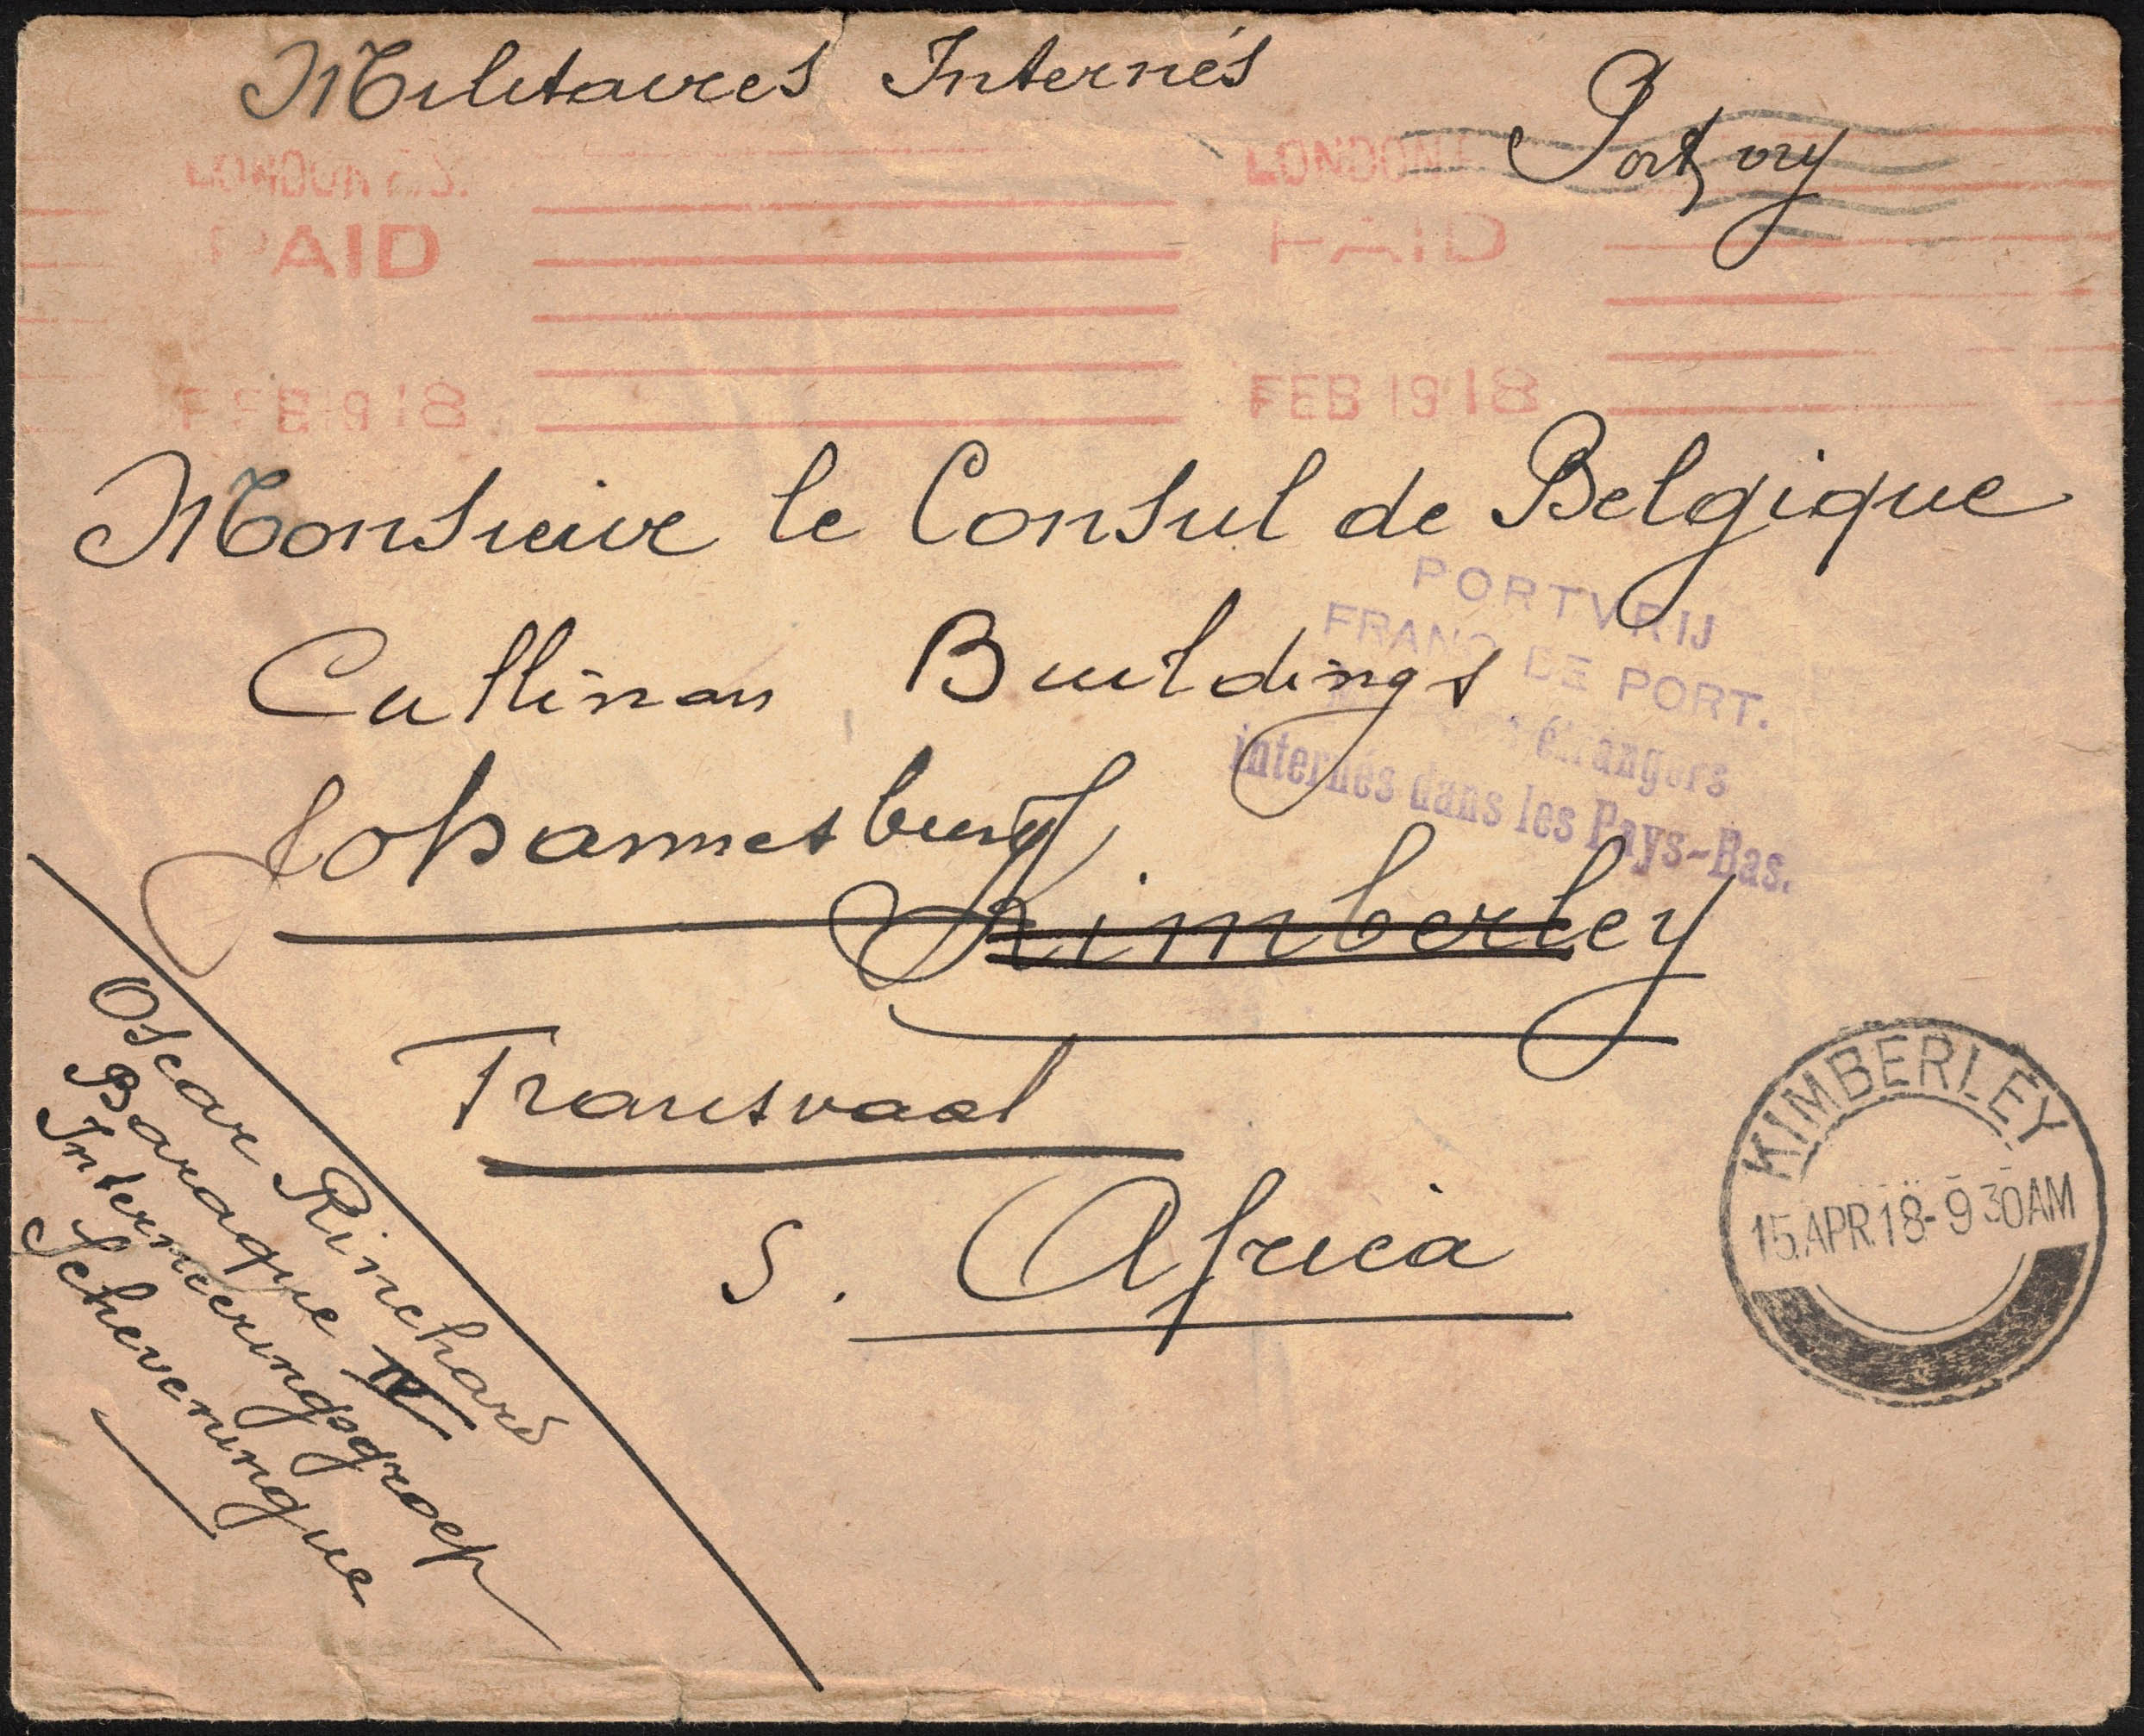 Militaires Internés
Port vry
LONDON
PAID
FEB 19 18
LONDON
PAID
FEB 19 18
Monsieur le Consul de Belgique
PORTVRIJ
FRANC DE PORT.
étrangers
internés dans les Pays-Bas.
Cullinan Buildings
Johannesburg
Kimberley
Transvaal
S. Africa
KIMBERLEY
15.APR.18-9 30AM
Oscar Rinchard
Baraque IV
Interneeringsgroep
Scheveningue